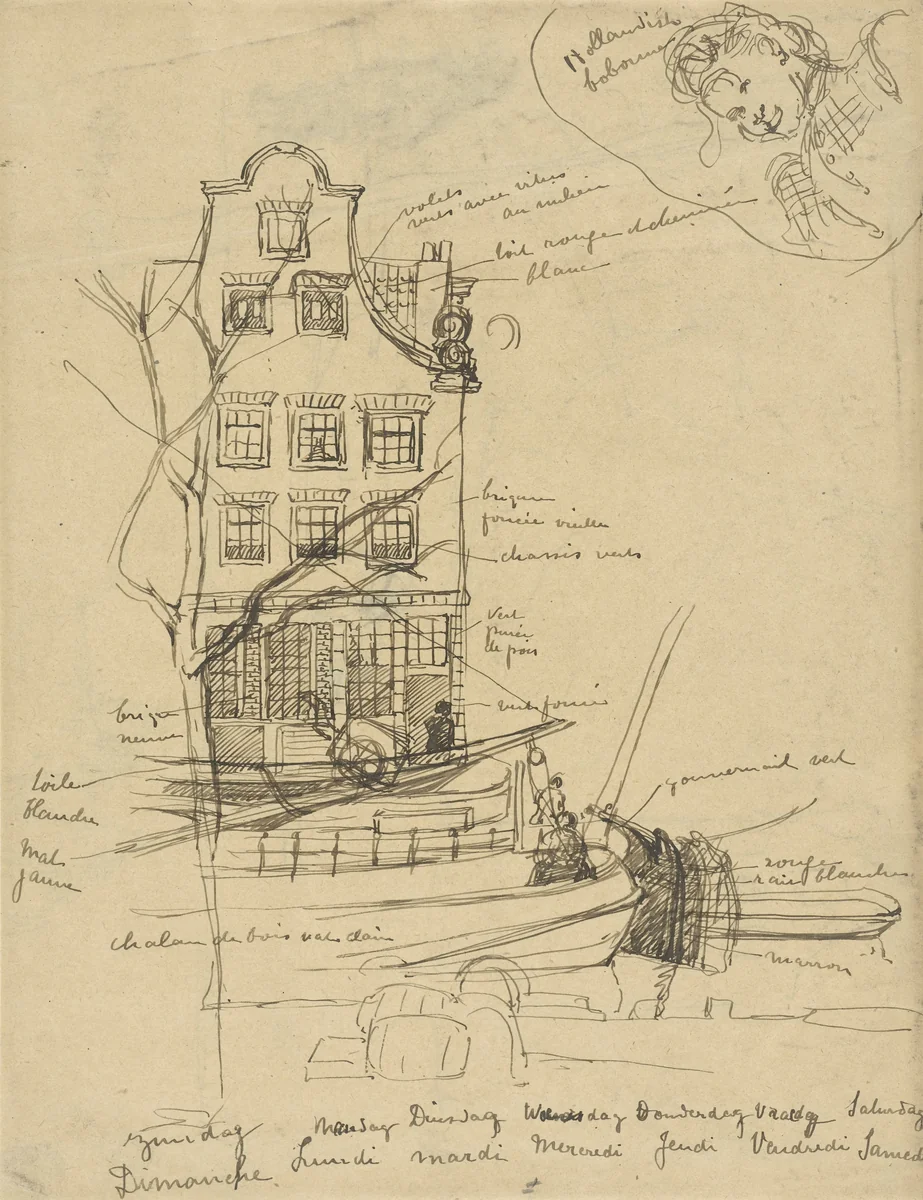 Hollandish
bobonne
volets
verts avec vitres
au milieu
toit rouge et cheminée
blanc
brique
foncée vieille
chassis verts
vert
purée
de pois
vert foncé
brique
neuve
toile
blanche
mat
jaune
gouvernail vert
rouge
raies blanches
marron
chalan de bois vert clair
zundag Mandag Diusdag Wansdag Donderdag Vradag Saturdag
Dimanche Lundi mardi Mercredi Jeudi Vendredi Samed